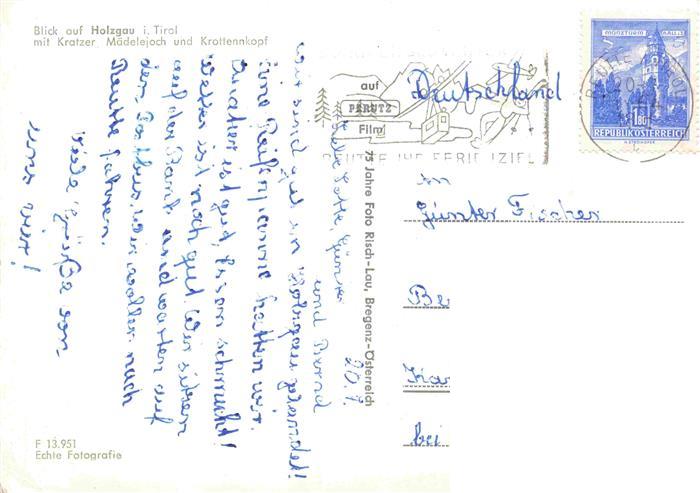 Blick auf Holzgau i. Tirol
mit Kratzer, Mädelejoch und Krottennkopf
Liebe Lotte, Günter
und Bernd
20.7.
wir sind gut in Holzgau gelandet!
Eine Reifenpanne hatten wir.
Quatier ist gut, Essen schmeckt!
Wetter ist noch gut. Wir sitzen
auf der Bank und warten auf
den Postbus. Wir wollen nach
Reutte fahren.
Viele Grüße von
uns vier!
F 13.951
Echte Fotografie
75 Jahre Foto Risch-Lau, Bregenz-Österreich
auf
PERUTZ
Film
REUTTE IHR FERIENZIEL
Deutschland
MÜNZTURM HALL I.T.
S 1.80
REPUBLIK ÖSTERREICH
REUTTE
An
Günter Fischer
Be
Kar
bei